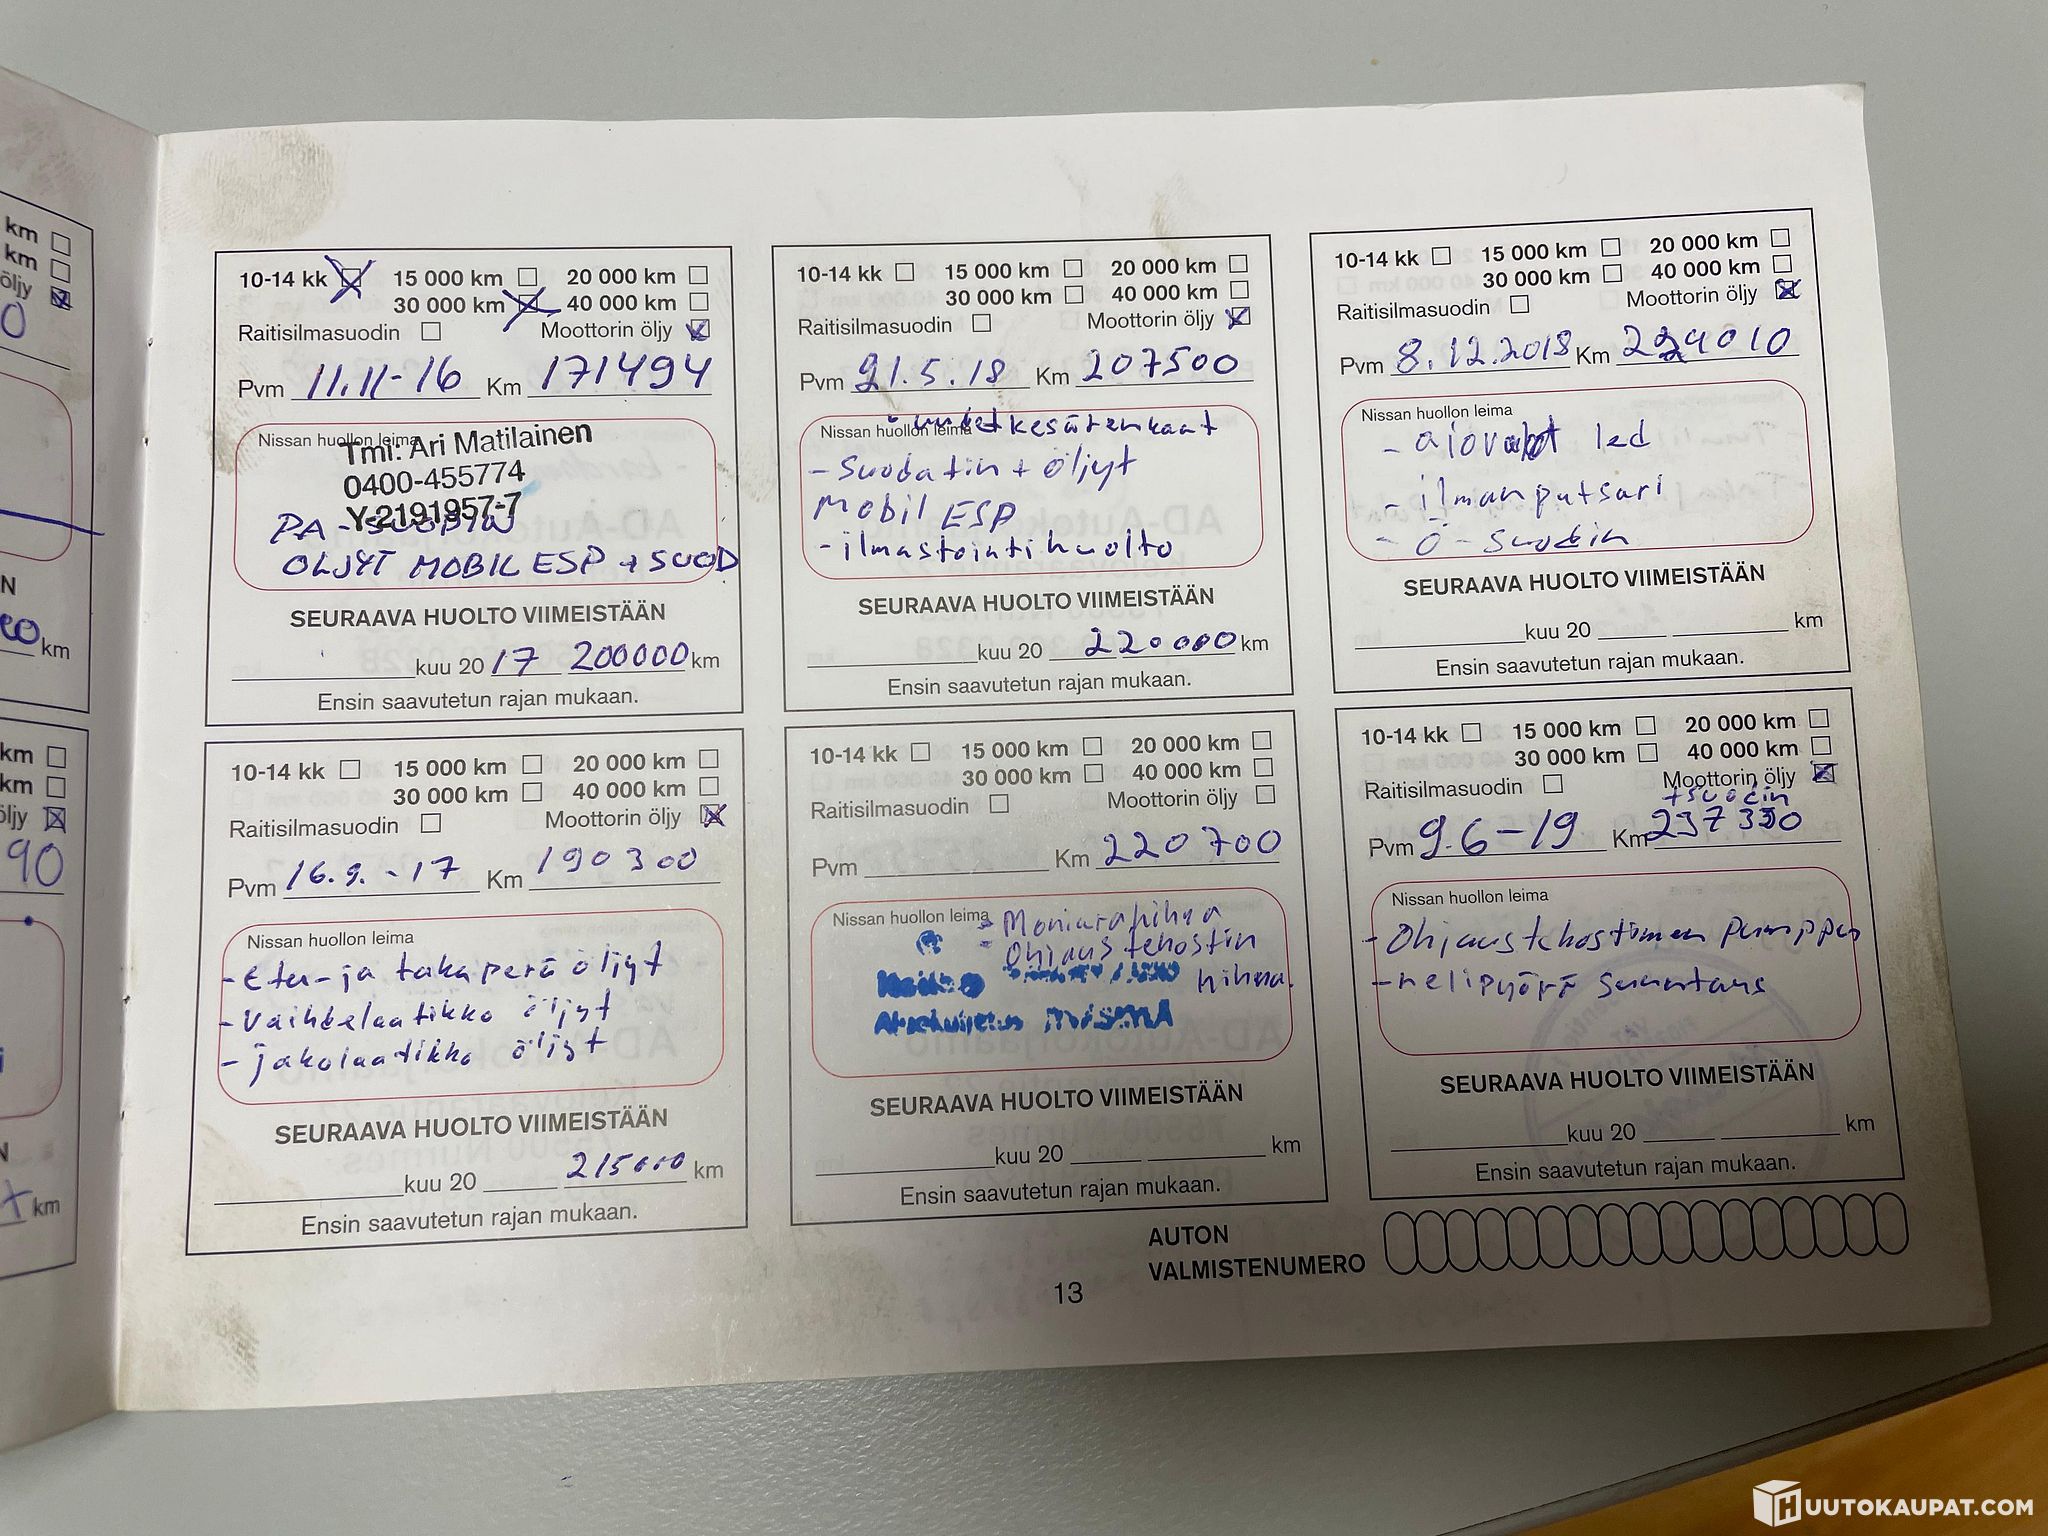 km
km
öljy
0
N
km
km
km
öljy
90
N
km
10-14 kk 15 000 km 20 000 km
30 000 km 40 000 km
Raitisilmasuodin Moottorin öljy
Pvm 11.11-16 Km 171494
Nissan huollon leima
Tmi: Ari Matilainen
0400-455774
Y-2191957-7
PA-SUODIN
ÖLJYT MOBIL ESP + SUOD
SEURAAVA HUOLTO VIIMEISTÄÄN
kuu 20 17 200000 km
Ensin saavutetun rajan mukaan.
10-14 kk 15 000 km 20 000 km
30 000 km 40 000 km
Raitisilmasuodin Moottorin öljy
Pvm 21.5.18 Km 207500
Nissan huollon leima
- uudet kesärenkaat
- suodatin + öljyt
Mobil ESP
- ilmastointihuolto
SEURAAVA HUOLTO VIIMEISTÄÄN
kuu 20 220000 km
Ensin saavutetun rajan mukaan.
10-14 kk 15 000 km 20 000 km
30 000 km 40 000 km
Raitisilmasuodin Moottorin öljy
Pvm 8.12.2018 Km 224010
Nissan huollon leima
- ajovalot led
- ilmanputsari
- Ö-suodin
SEURAAVA HUOLTO VIIMEISTÄÄN
kuu 20 km
Ensin saavutetun rajan mukaan.
10-14 kk 15 000 km 20 000 km
30 000 km 40 000 km
Raitisilmasuodin Moottorin öljy
Pvm 16.9.-17 Km 190300
Nissan huollon leima
- Etu- ja takaperä öljyt
- Vaihdelaatikko öljyt
- jakolaatikko öljyt
SEURAAVA HUOLTO VIIMEISTÄÄN
kuu 20 215000 km
Ensin saavutetun rajan mukaan.
10-14 kk 15 000 km 20 000 km
30 000 km 40 000 km
Raitisilmasuodin Moottorin öljy
Pvm Km 220700
Nissan huollon leima
- Moniurahihna
- Ohjaustehostin
hihna.
SEURAAVA HUOLTO VIIMEISTÄÄN
kuu 20 km
Ensin saavutetun rajan mukaan.
10-14 kk 15 000 km 20 000 km
30 000 km 40 000 km
Raitisilmasuodin Moottorin öljy
+suodin
Pvm 9.6-19 Km 237350
Nissan huollon leima
- Ohjaustehostimen pumppu
- nelipyörä suuntaus
SEURAAVA HUOLTO VIIMEISTÄÄN
kuu 20 km
Ensin saavutetun rajan mukaan.
AUTON
VALMISTENUMERO
13
HUUTOKAUPAT.COM